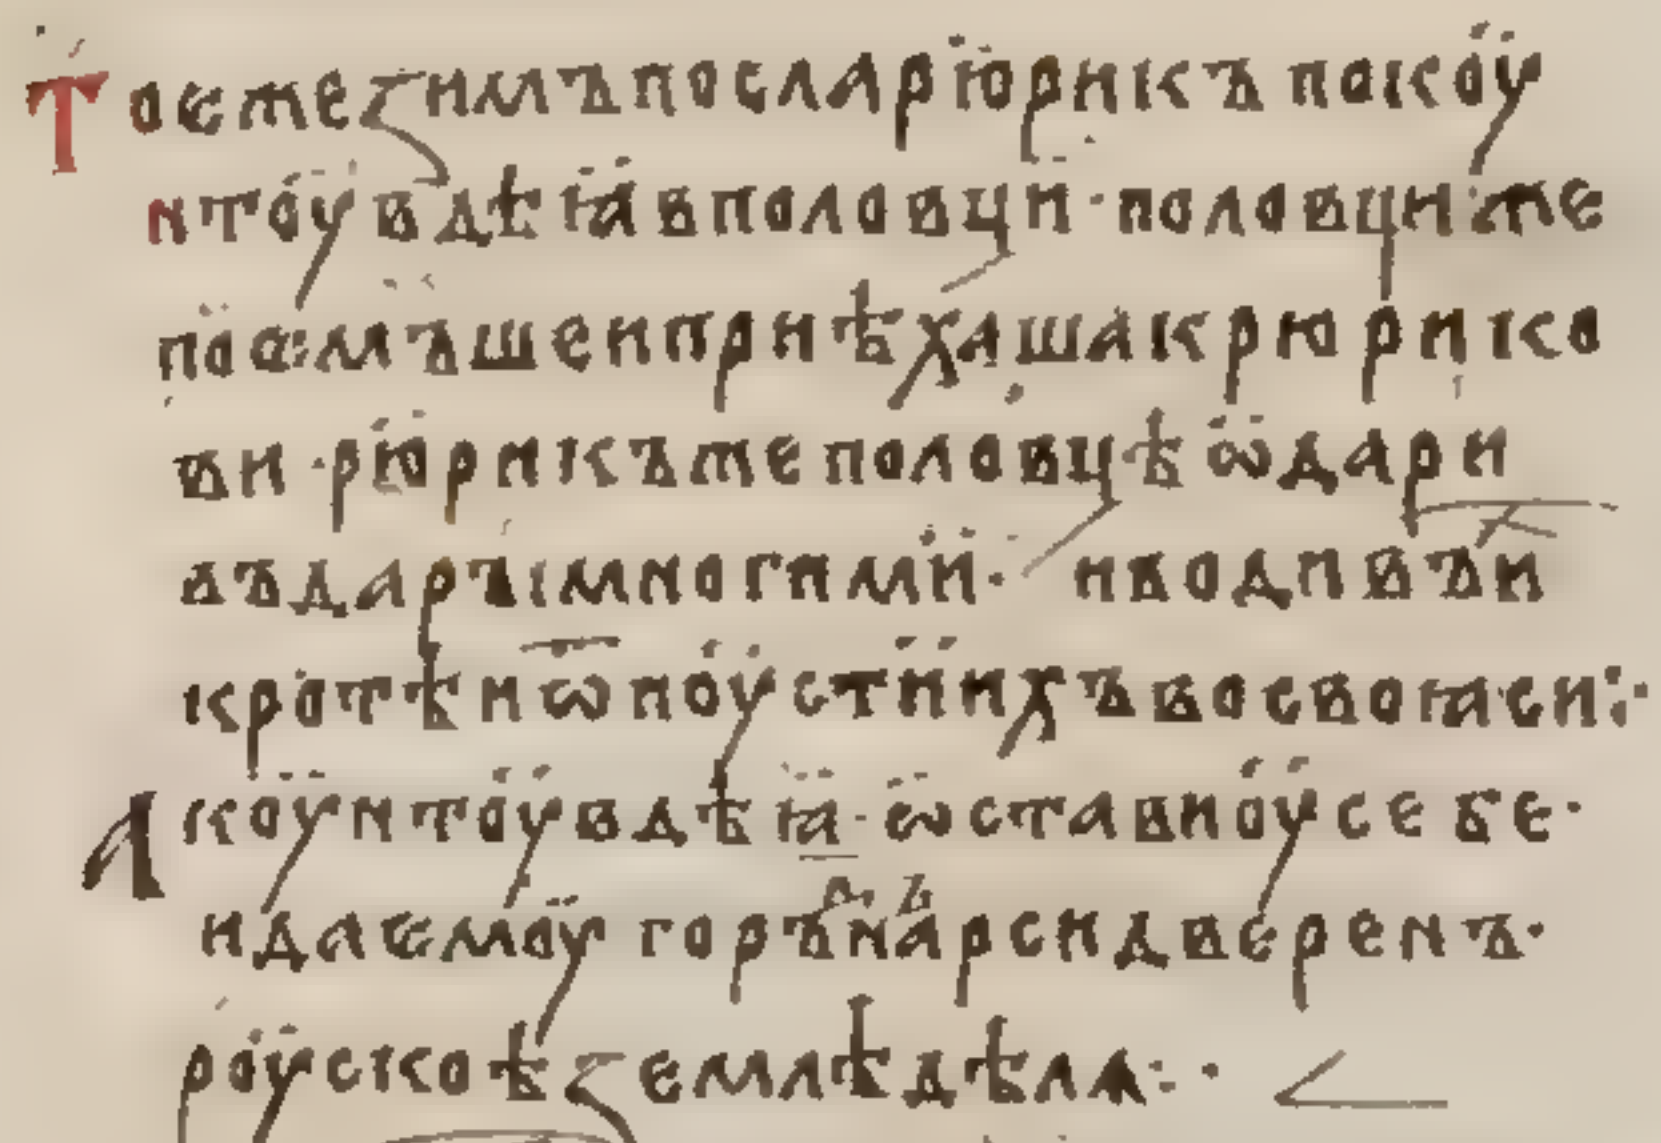 Тоєжеꙁимъпосларюрикъ покоу
нтоувдѣꙗвполовци· половциже
поємъшеиприѣхашакрюрико
ви·рюрикъжеполовцѣѡдари
въдарꙑмногими· иводивъи
кротѣиѿпоустиихъвосвоꙗси⁘
Акоунтоувдѣꙗ·ѡставиоусебе·
идаємоу горъⷣнарсидверенъ·
роускоѣꙁемлѣдѣлѧ⁘